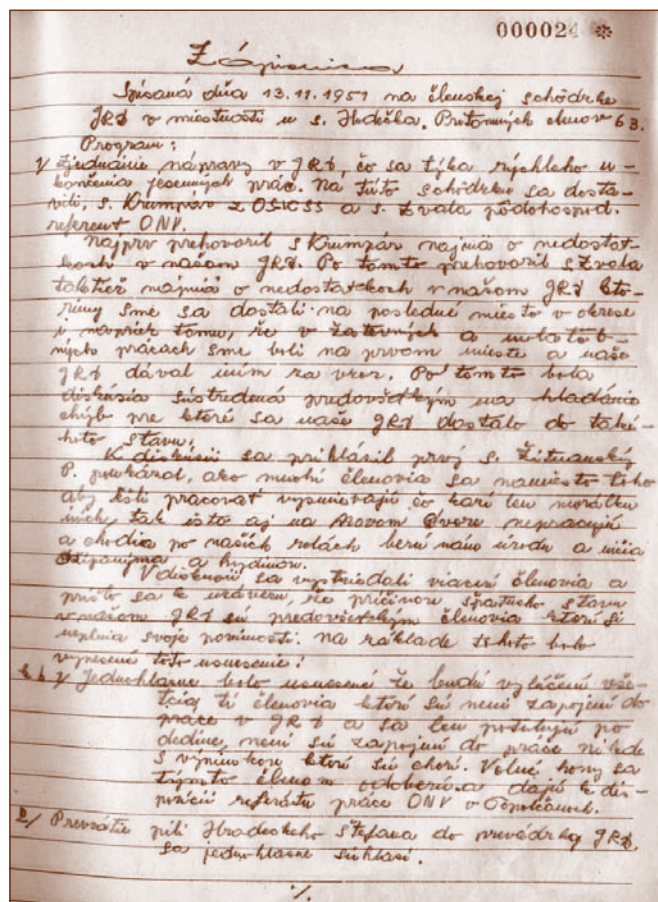 000024
Zápisnica
Spísaná dňa 13.11.1951 na členskej schôdzke
JRD v miestnosti u s. Hudečka. Prítomných členov 63.
Program:
1/ Zjednánie nápravy v JRD, čo sa týka rýchleho u-
končenia jesenných prác. Na túto schôdzku sa dosta-
vili, s. Krumpár z OSKSS a s. Zvala pôdohospod.
referent ONV.
Najprv prehovoril s Krumpár najmä o nedostat-
koch v našom JRD. Po tomto prehovoril s Zvala
taktiež najmä o nedostatkoch v našom JRD kto-
rými sme sa dostali na posledné miesto v okrese
i napriek tomu, že v žatevných a mlatob-
ných prácach sme boli na prvom mieste a naše
JRD dával iným za vzor. Po tomto bola
diskúsia sústredená predovšetkým na hľadánie
chýb pre ktoré sa naše JRD dostalo do také-
hoto stavu.
K diskúsii sa prihlásil prvý s. Žitnanský
P. poukázal, ako mnohí členovia sa namiesto toho
aby išli pracovať vysmievajú čo kazí len morálku
iných, tak isto aj na Novom Dvore nepracujú
a chodia po našich rolách berú nám úrodu a ničia
a hydinou.
V diskusii sa vystriedali viacerí členovia a
prišlo sa k uzáveru, že príčinou špatného stavu
v našom JRD sú predovšetkým členovia ktorí si
neplnia svoje povinosti. Na základe tohoto bolo
vynesené toto usnesenie:
1/ Jednohlasne bolo usnesené že budú vylúčení vše-
tcia tí členovia ktorí sú není zapojení do
práce v JRD a sa len potulujú po
dedine, není sú zapojení do práce nikde
s výnimkou ktorí sú chorí. Voľné hony sa
týmto členom odoberú a dajú k dis-
pozícii referátu práce ONV v Topolčanoch.
2/ Prevzatie píli Hradeckeho Štefana do prevádzky JRD,
sa jednohlasne súhlasí.
./.